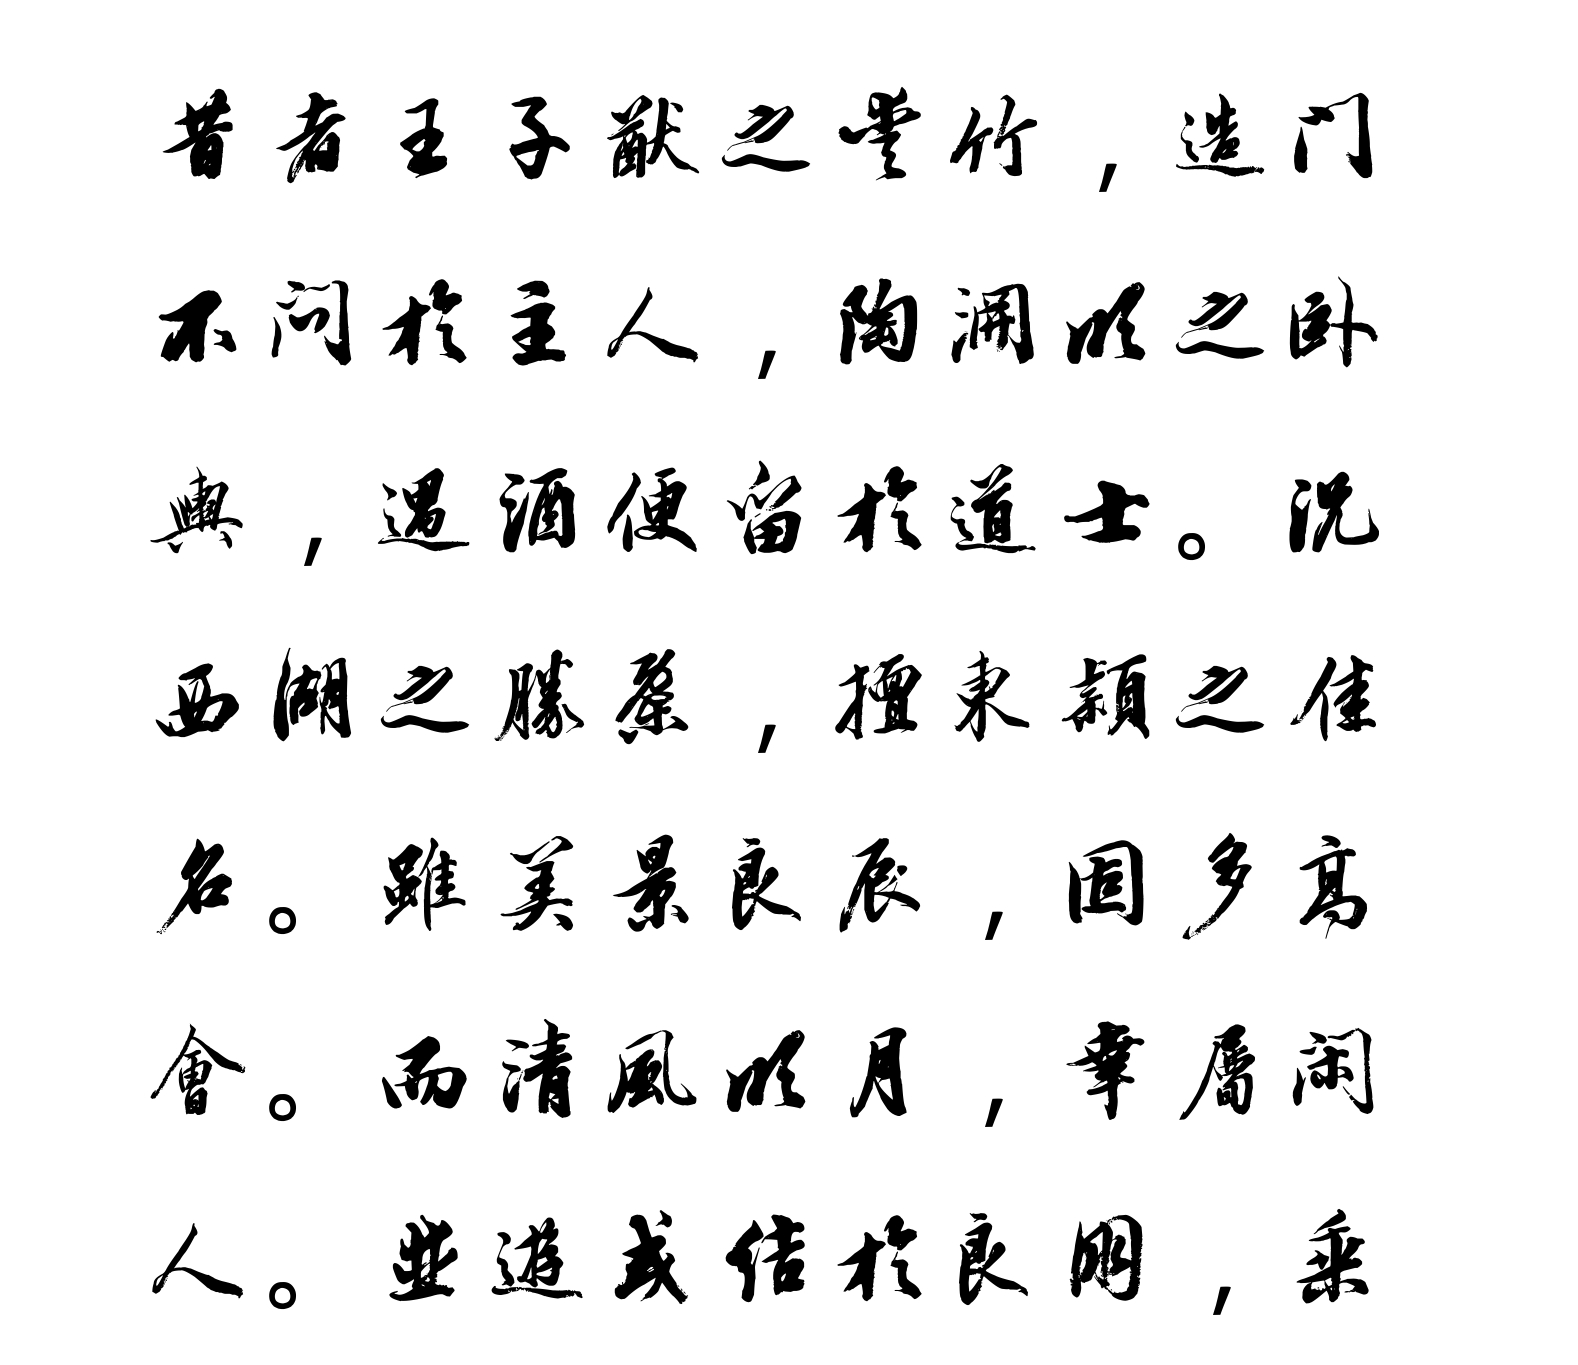 昔者王子猷之愛竹，造門
不問於主人，陶淵明之臥
輿，遇酒便留於道士。況
西湖之勝槩，擅東潁之佳
名。雖美景良辰，固多高
會。而清風明月，幸屬閑
人。並遊或結於良朋，乘